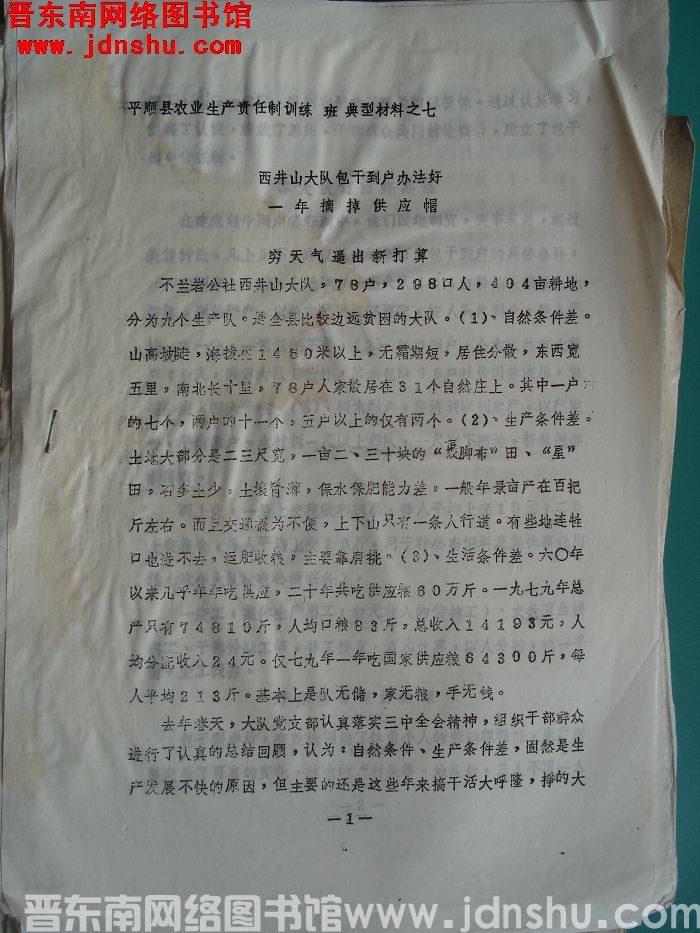 晋东南网络图书馆
www.jdnshu.com
平顺县农业生产责任制训练 班 典型材料之七
西井山大队包干到户办法好
一年摘掉供应帽
穷天气逼出新打算
不兰岩公社西井山大队，78户，298口人，404亩耕地，
分为九个生产队。是全县比较边远贫困的大队。（1）、自然条件差。
山高坡陡，海拔在1450米以上，无霜期短，居住分散，东西宽
五里，南北长十里，78户人家散居在31个自然庄上。其中一户
的七个，两户的十一个，五户以上的仅有两个。（2）、生产条件差。
土地大部分是二三尺宽，一亩二、三十块的“裹脚布”田、“星”
田，石多土少，土壤脊薄，保水保肥能力差，一般年景亩产在百把
斤左右。而且交通极为不便，上下山只有一条人行道。有些地连牲
口也进不去，运肥收粮，主要靠肩挑。（3）、生活条件差。六〇年
以来几乎年年吃供应，二十年共吃供应粮60万斤。一九七九年总
产只有74810斤，人均口粮83斤，总收入14193元，人
均分配收入24元。仅七九年一年吃国家供应粮64300斤，每
人平均213斤。基本上是队无储，家无粮，手无钱。
去年春天，大队党支部认真落实三中全会精神，组织干部群众
进行了认真的总结回顾，认为：自然条件、生产条件差，固然是生
产发展不快的原因，但主要的还是这些年来搞干活大呼隆，挣的大
—1—
晋东南网络图书馆 www.jdnshu.com